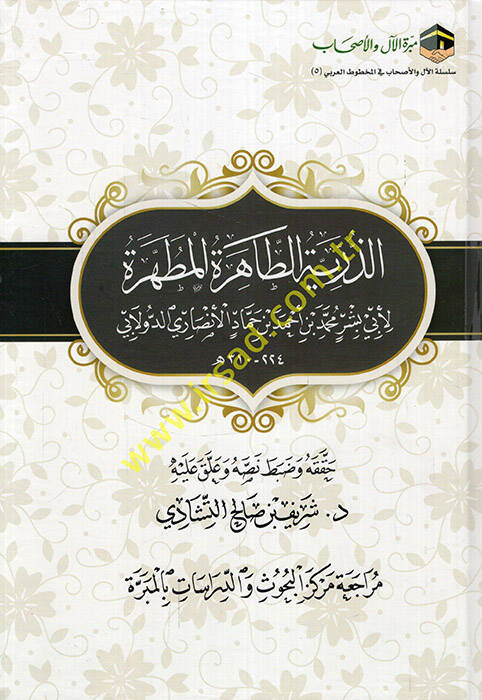 مبرة الآل والأصحاب
سلسلة الآل والأصحاب في المخطوط العربي (٥)
الذُّرِّيَّةُ الطَّاهِرَةُ المُطَهَّرَةُ
لِأَبِي بِشْرٍ مُحَمَّدِ بْنِ أَحْمَدَ بْنِ حَمَّادٍ الأَنْصَارِيِّ الدُّولَابِيِّ
٢٢٤ - ٣١٠ هـ
www.irsad.com.tr
حَقَّقَهُ وَضَبَطَ نَصَّهُ وَعَلَّقَ عَلَيْهِ
د. شَرِيف بْن صَالِح التّشَادِي
مُرَاجَعَة مَرْكَز البُحُوثِ وَالدِّرَاسَاتِ بِالمَبَرَّة